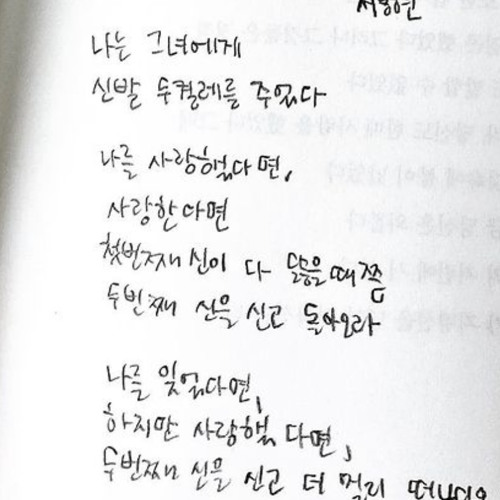 서덕준
나는 그녀에게
신발 두켤레를 주었다
나를 사랑했다면,
사랑한다면
첫번째 신이 다 닳을때쯤
두번째 신을 신고 돌아오라
나를 잊었다면,
하지만 사랑했다면,
두번째 신을 신고 더 멀리